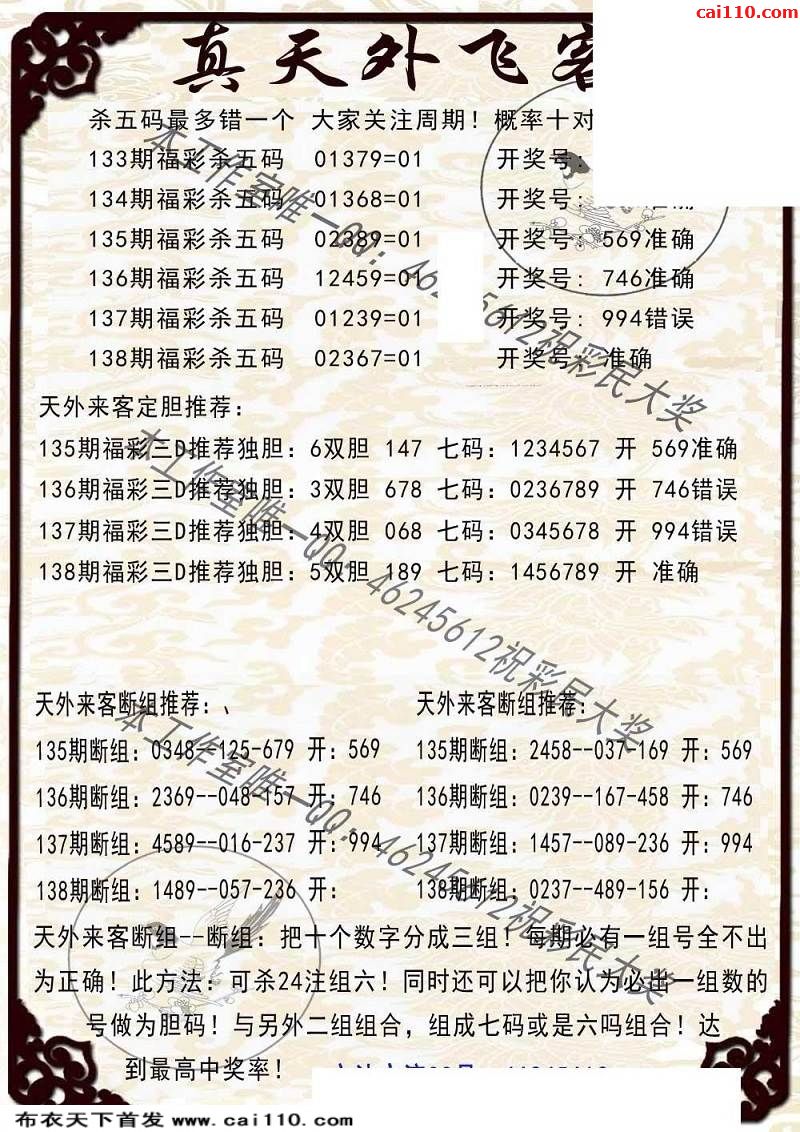 cai110.com
真天外飞客
杀五码最多错一个 大家关注周期！概率十对
133期福彩杀五码 01379=01 开奖号：
134期福彩杀五码 01368=01 开奖号： 准确
135期福彩杀五码 02389=01 开奖号：569准确
136期福彩杀五码 12459=01 开奖号：746准确
137期福彩杀五码 01239=01 开奖号：994错误
138期福彩杀五码 02367=01 开奖号：准确
天外来客定胆推荐：
135期福彩三D推荐独胆：6双胆 147 七码：1234567 开 569准确
136期福彩三D推荐独胆：3双胆 678 七码：0236789 开 746错误
137期福彩三D推荐独胆：4双胆 068 七码：0345678 开 994错误
138期福彩三D推荐独胆：5双胆 189 七码：1456789 开 准确
天外来客断组推荐：、 天外来客断组推荐：
135期断组：0348--125-679 开：569 135期断组：2458--037-169 开：569
136期断组：2369--048-157 开：746 136期断组：0239--167-458 开：746
137期断组：4589--016-237 开：994 137期断组：1457--089-236 开：994
138期断组：1489--057-236 开： 138期断组：0237--489-156 开：
天外来客断组--断组：把十个数字分成三组！每期必有一组号全不出
为正确！此方法：可杀24注组六！同时还可以把你认为必出一组数的
号做为胆码！与另外二组组合，组成七码或是六吗组合！达
到最高中奖率！
本工作室唯一QQ：46245612祝彩民大奖
本工作室唯一QQ：46245612祝彩民大奖
本工作室唯一QQ：46245612祝彩民大奖
布衣天下首发 www.cai110.com